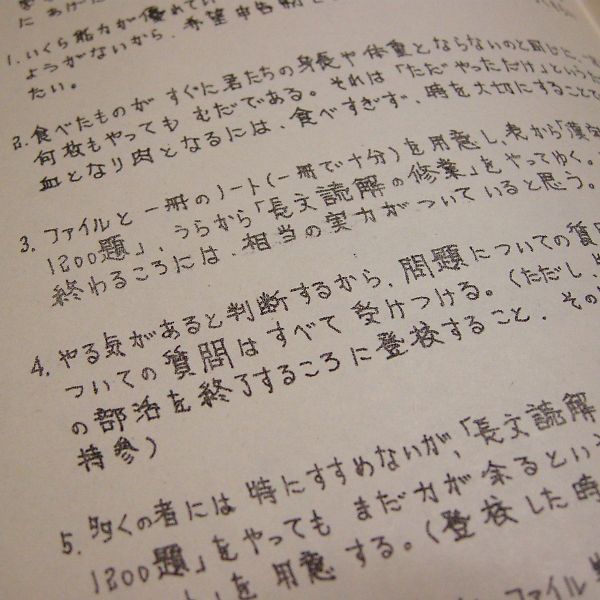 1. いくら能力が優れてい
ようがないから、希望申告制
たい。
2. 食べたものが すぐに君たちの身長や体重とならないのと同じに、
何枚もやっても むだである。それは「ただやっただけ」という
血となり肉となるには、食べすぎず、時を大切にすることで
3. ファイルと一冊のノート(一冊で十分)を用意し、表から「漢字
1200題」、うらから「長文読解の修業」をやってゆく。
終わるころには、相当の実力がついていると思う。
4. やる気があると判断するから、問題についての質
ついての質問はすべて受けつける。(ただし、
の部活を終了するころに登校すること、その
持参)
5. 多くの者には特にすすめないが、「長文読解
1200題」をやっても まだ力が余るという
」を用意する。(登校した時
ファイル